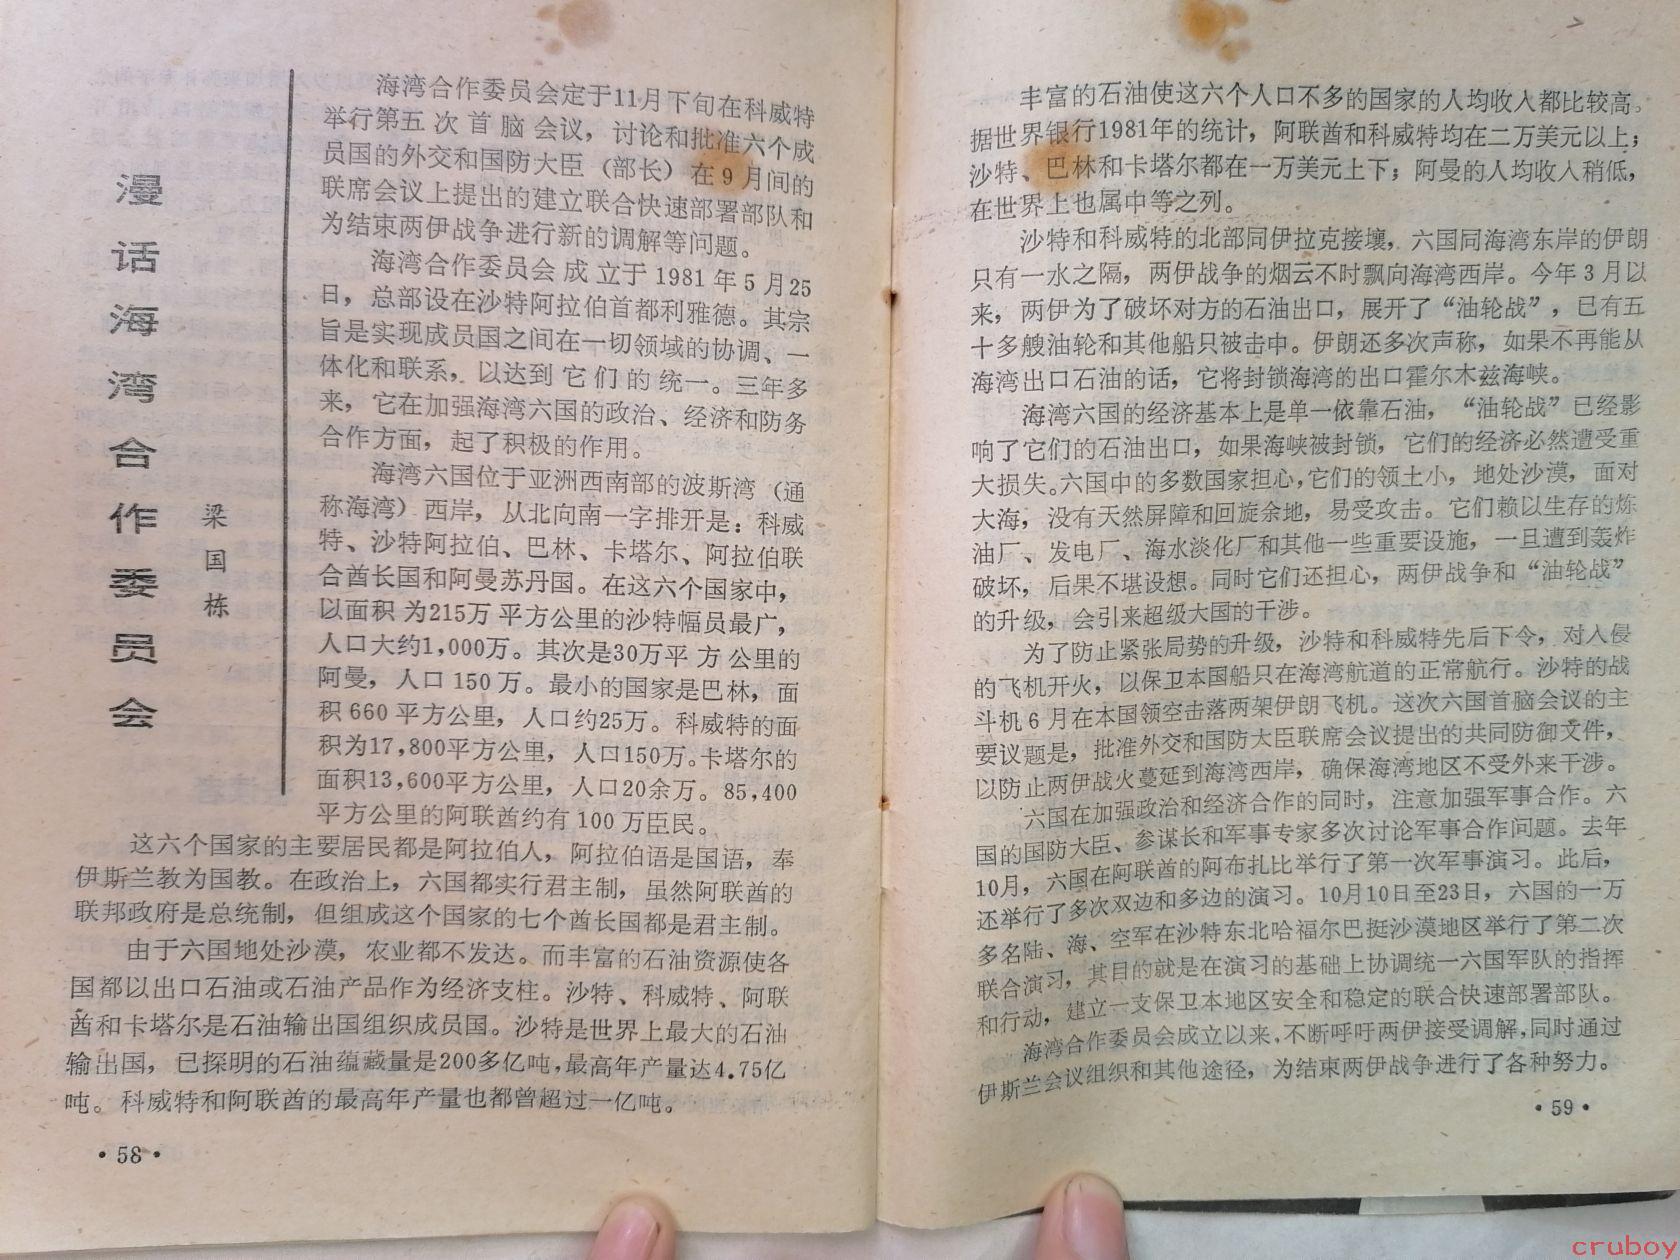 漫话海湾合作委员会
梁国栋
海湾合作委员会定于11月下旬在科威特
举行第五次首脑会议，讨论和批准六个成
员国的外交和国防大臣（部长）在9月间的
联席会议上提出的建立联合快速部署部队和
为结束两伊战争进行新的调解等问题。
海湾合作委员会成立于1981年5月25
日，总部设在沙特阿拉伯首都利雅德。其宗
旨是实现成员国之间在一切领域的协调、一
体化和联系，以达到它们的统一。三年多
来，它在加强海湾六国的政治、经济和防务
合作方面，起了积极的作用。
海湾六国位于亚洲西南部的波斯湾（通
称海湾）西岸，从北向南一字排开是：科威
特、沙特阿拉伯、巴林、卡塔尔、阿拉伯联
合酋长国和阿曼苏丹国。在这六个国家中，
以面积为215万平方公里的沙特幅员最广，
人口大约1,000万。其次是30万平方公里的
阿曼，人口150万。最小的国家是巴林，面
积660平方公里，人口约25万。科威特的面
积为17,800平方公里，人口150万。卡塔尔的
面积13,600平方公里，人口20余万。85,400
平方公里的阿联酋约有100万臣民。
这六个国家的主要居民都是阿拉伯人，阿拉伯语是国语，奉
伊斯兰教为国教。在政治上，六国都实行君主制，虽然阿联酋的
联邦政府是总统制，但组成这个国家的七个酋长国都是君主制。
由于六国地处沙漠，农业都不发达。而丰富的石油资源使各
国都以出口石油或石油产品作为经济支柱。沙特、科威特、阿联
酋和卡塔尔是石油输出国组织成员国。沙特是世界上最大的石油
输出国，已探明的石油蕴藏量是200多亿吨，最高年产量达4.75亿
吨。科威特和阿联酋的最高年产量也都曾超过一亿吨。
·58·
丰富的石油使这六个人口不多的国家的人均收入都比较高。
据世界银行1981年的统计，阿联酋和科威特均在二万美元以上；
沙特、巴林和卡塔尔都在一万美元上下；阿曼的人均收入稍低，
在世界上也属中等之列。
沙特和科威特的北部同伊拉克接壤，六国同海湾东岸的伊朗
只有一水之隔，两伊战争的烟云不时飘向海湾西岸。今年3月以
来，两伊为了破坏对方的石油出口，展开了“油轮战”，已有五
十多艘油轮和其他船只被击中。伊朗还多次声称，如果不再能从
海湾出口石油的话，它将封锁海湾的出口霍尔木兹海峡。
海湾六国的经济基本上是单一依靠石油，“油轮战”已经影
响了它们的石油出口，如果海峡被封锁，它们的经济必然遭受重
大损失。六国中的多数国家担心，它们的领土小，地处沙漠，面对
大海，没有天然屏障和回旋余地，易受攻击。它们赖以生存的炼
油厂、发电厂、海水淡化厂和其他一些重要设施，一旦遭到轰炸
破坏，后果不堪设想。同时它们还担心，两伊战争和“油轮战”
的升级，会引来超级大国的干涉。
为了防止紧张局势的升级，沙特和科威特先后下令，对入侵
的飞机开火，以保卫本国船只在海湾航道的正常航行。沙特的战
斗机6月在本国领空击落两架伊朗飞机。这次六国首脑会议的主
要议题是，批准外交和国防大臣联席会议提出的共同防御文件，
以防止两伊战火蔓延到海湾西岸，确保海湾地区不受外来干涉。
六国在加强政治和经济合作的同时，注意加强军事合作。六
国的国防大臣、参谋长和军事专家多次讨论军事合作问题。去年
10月，六国在阿联酋的阿布扎比举行了第一次军事演习。此后，
还举行了多次双边和多边的演习。10月10日至23日，六国的一万
多名陆、海、空军在沙特东北哈福尔巴挺沙漠地区举行了第二次
联合演习，其目的就是在演习的基础上协调统一六国军队的指挥
和行动，建立一支保卫本地区安全和稳定的联合快速部署部队。
海湾合作委员会成立以来，不断呼吁两伊接受调解，同时通过
伊斯兰会议组织和其他途径，为结束两伊战争进行了各种努力。
·59·
cruboy